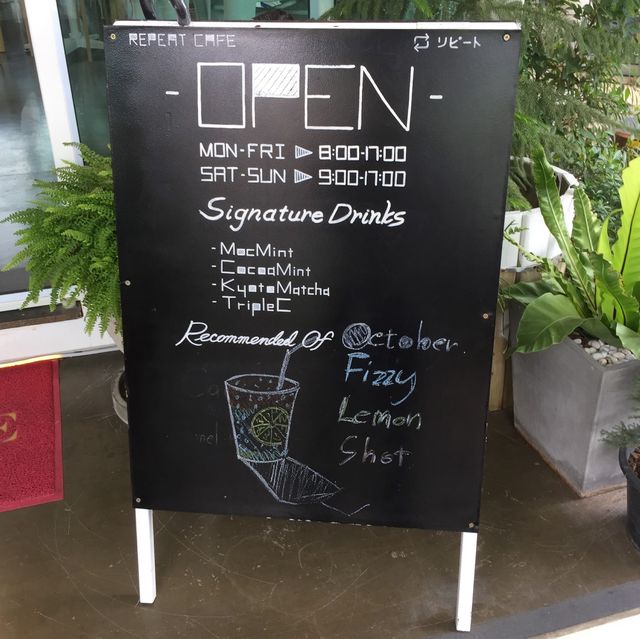 REPEAT CAFE
リピート
- OPEN -
MON-FRI ▶ 8:00-17:00
SAT-SUN ▶ 9:00-17:00
Signature Drinks
- MocMint
- CocoaMint
- KyotoMatcha
- TripleC
Recommended Of October.
Fizzy
Lemon
Shot
E